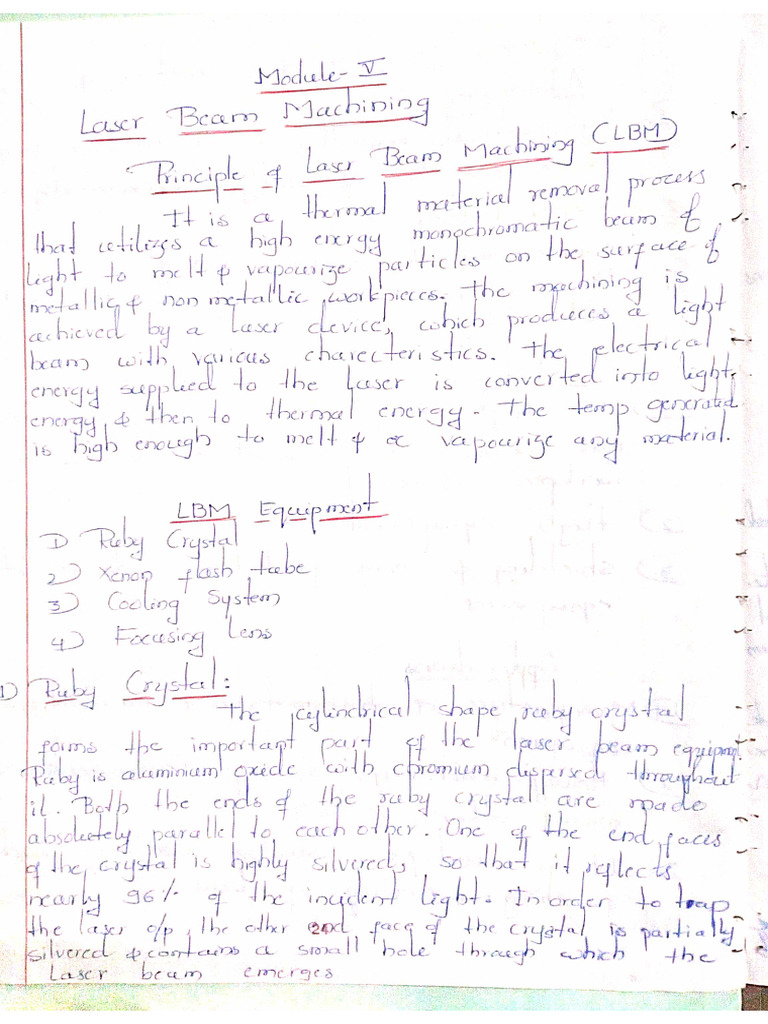 Module-V
Laser Beam Machining
Principle of Laser Beam Machining (LBM)
It is a thermal material removal process
that utilizes a high energy monochromatic beam of
light to melt & vapourize particles on the surface of
metallic & non metallic workpieces. The machining is
achieved by a laser device, which produces a light
beam with various charecteristics. The electrical
energy supplied to the laser is converted into light
energy & then to thermal energy. The temp generated
is high enough to melt & or vapourize any material.
LBM Equipment
1) Ruby Crystal
2) Xenon flash tube
3) Cooling System
4) Focusing Lens
1) Ruby Crystal:
The cylindrical shape ruby crystal
forms the important part of the laser beam equipm
Ruby is aluminium oxide with chromium dispersed throughout
it. Both the ends of the ruby crystal are made
absolutely parallel to each other. One of the end faces
of the crystal is highly silvered, so that it reflects
nearly 96% of the incident light. In order to trap
the laser o/p, the other end face of the crystal is partially
silvered & contains a small hole through which the
Laser beam emerges